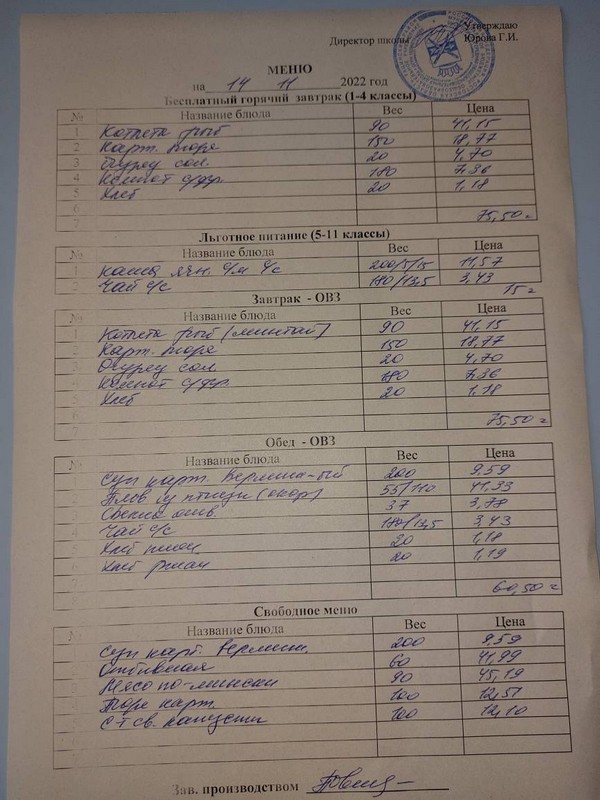 Утверждаю
Директор школы Юрова Г.И.
МЕНЮ
на 14 11 2022 год
Бесплатный горячий завтрак (1-4 классы)
№ Название блюда Вес Цена
1 Котлета рыб 90 41,15
2 Карт. пюре 150 18,77
3 Огурец сол. 20 4,70
4 Компот с/фр 180 7,36
5 Хлеб 20 1,18
6
7 75,50
Льготное питание (5-11 классы)
№ Название блюда Вес Цена
1 Каша ячн. с/м с/с 200/5/15 11,57
2 Чай с/с 180/13,5 3,43
15
Завтрак - ОВЗ
№ Название блюда Вес Цена
1 Котлета рыб (минтай) 90 41,15
2 Карт. пюре 150 18,77
3 Огурец сол. 20 4,70
4 Компот с/фр 180 7,36
5 Хлеб 20 1,18
6
7 75,50
Обед - ОВЗ
№ Название блюда Вес Цена
1 Суп карт. вермиш-ый 200 9,59
2 Плов из птицы (окор) 55/110 41,33
3 Свекла отв. 37 3,78
4 Чай с/с 180/13,5 3,43
5 Хлеб пшен 20 1,18
6 Хлеб ржан 20 1,19
7
8 60,50
Свободное меню
№ Название блюда Вес Цена
Суп карт. вермиш. 200 9,59
Отбивная 60 41,99
Мясо по-мински 90 45,19
Пюре карт. 100 12,51
С-т св. капусты 100 12,10
Зав. производством